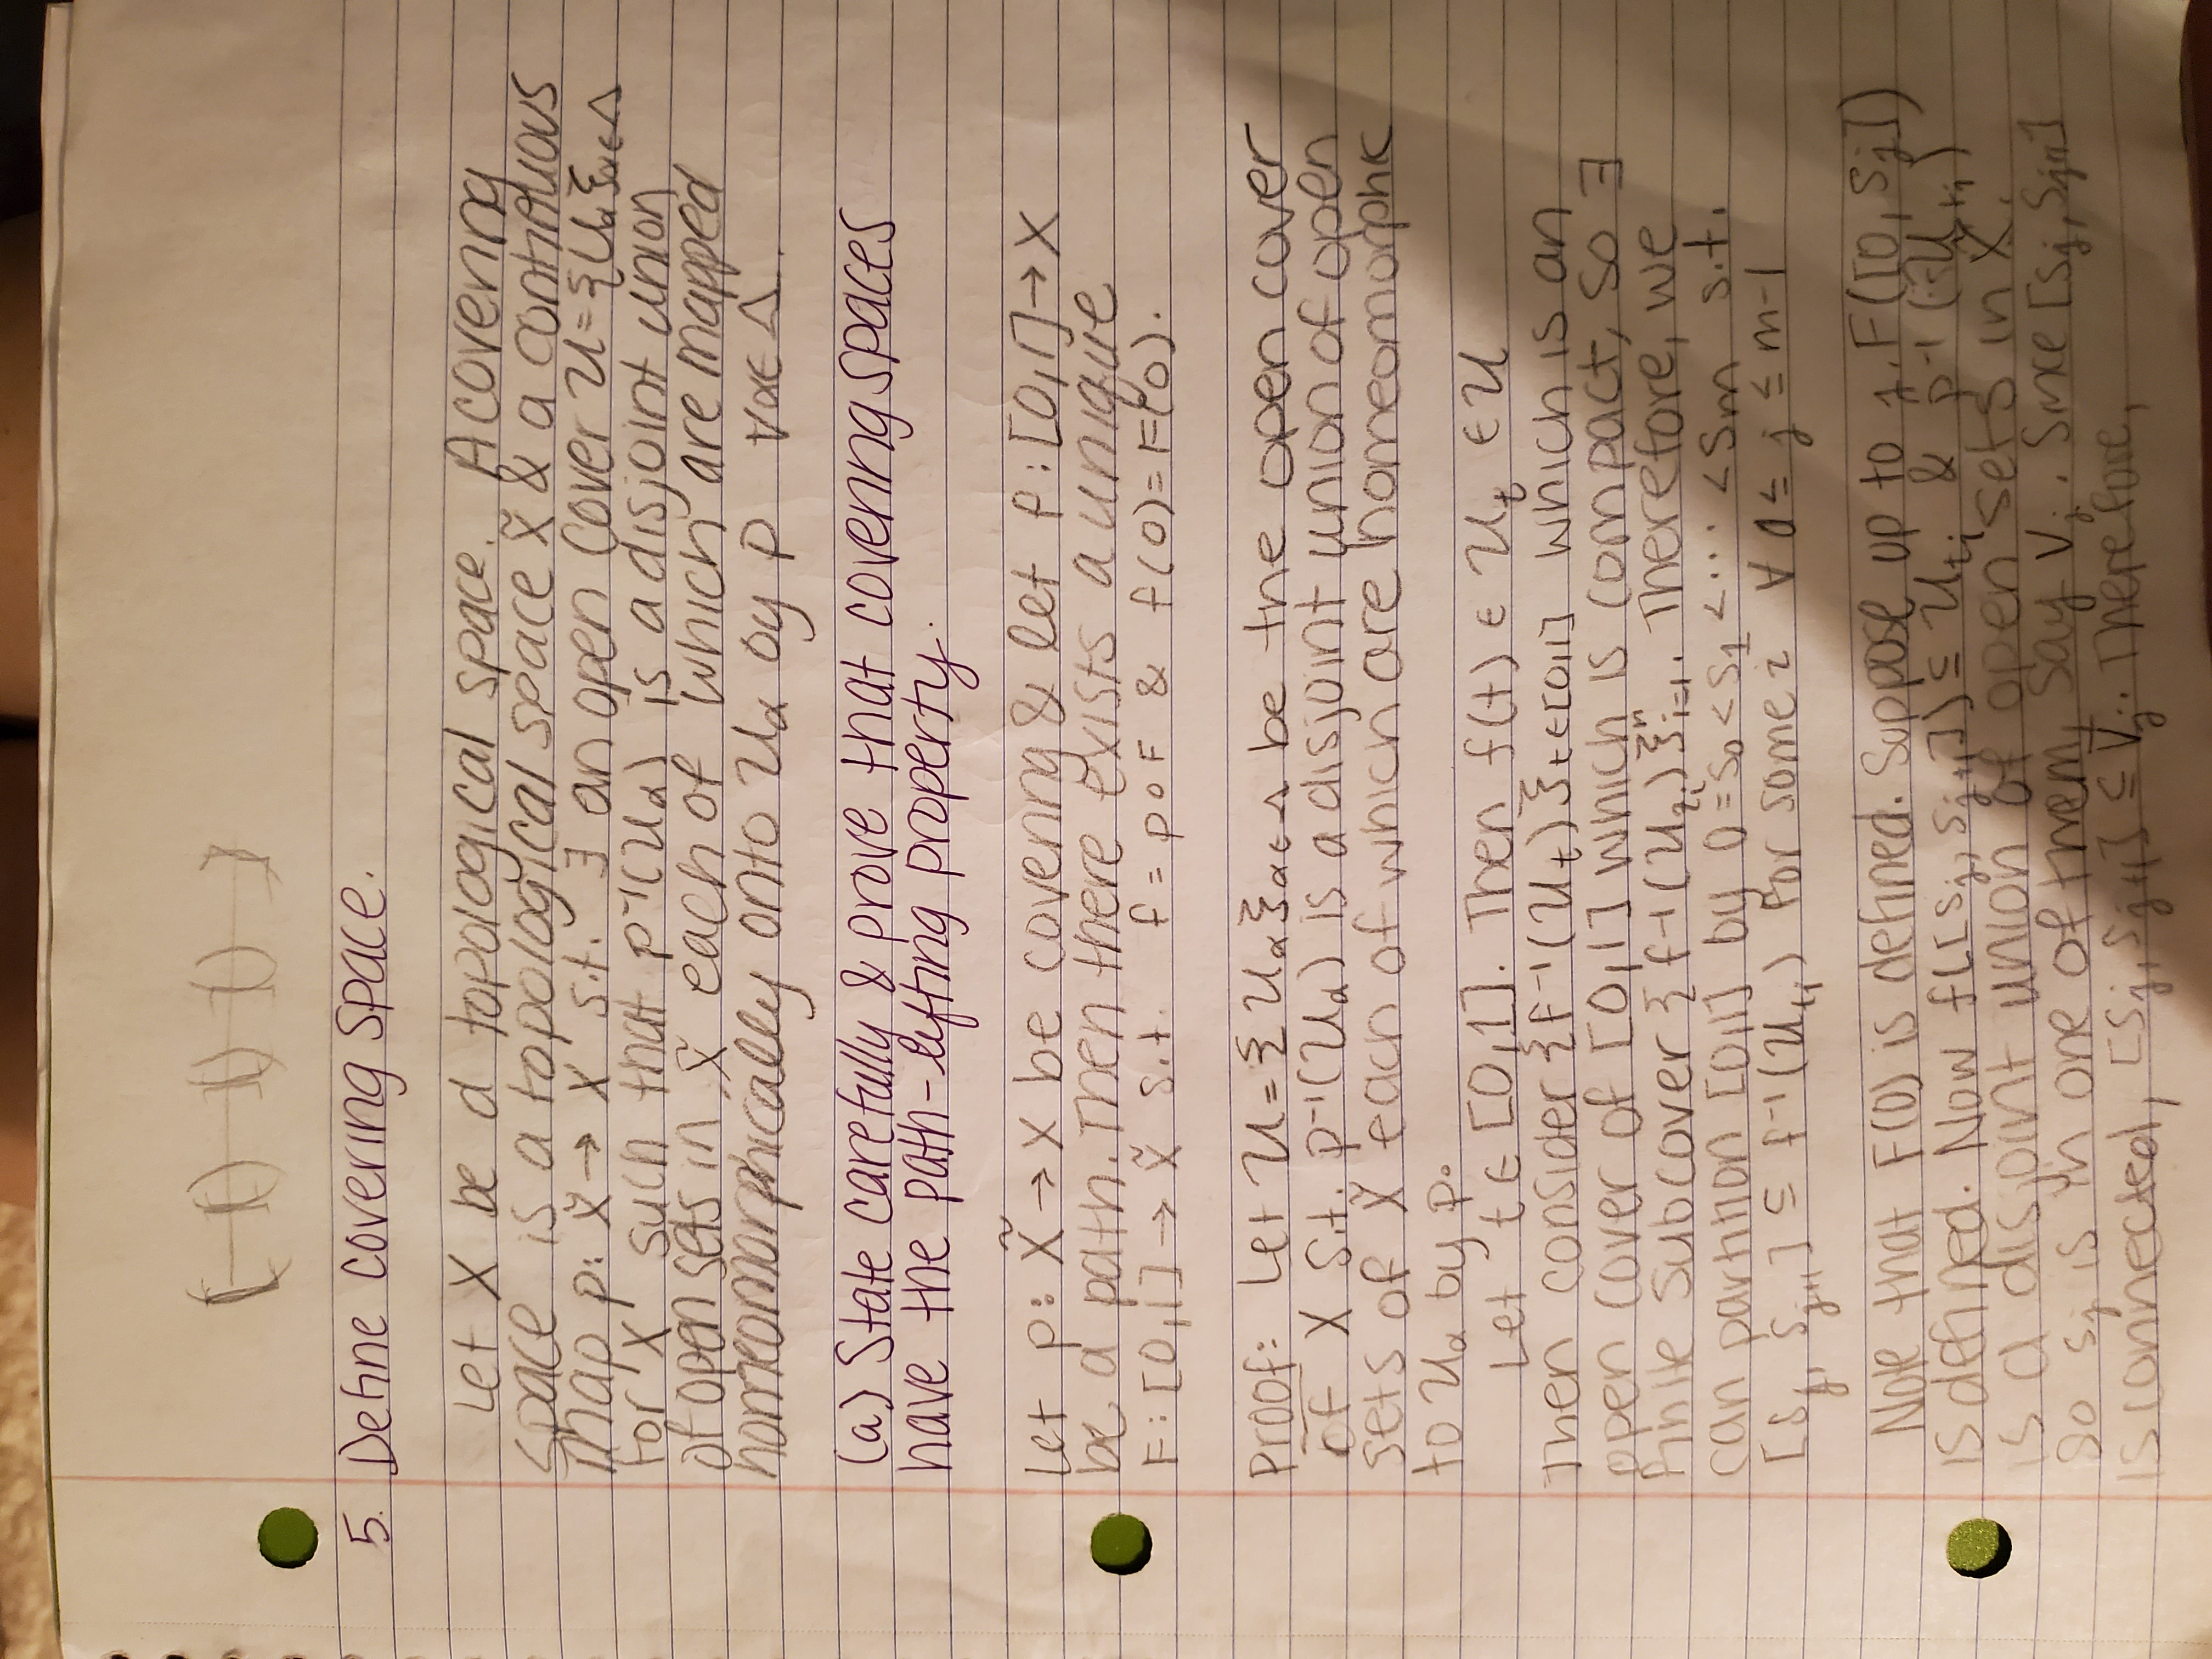 5. Define covering space.
Let X be a topological space. A covering
space is a topological space X̃ & a continuous
map p: X̃ → X s.t. ∃ an open cover U = {Uα}α∈Λ
for X such that p⁻¹(Uα) is a disjoint union
of open sets in X̃ each of which are mapped
homeomorphically onto Uα by p ∀α∈Λ.
(a) State carefully & prove that covering spaces
have the path-lifting property.
Let p: X̃ → X be covering & let f: [0,1] → X
be a path. Then there exists a unique
F: [0,1] → X̃ s.t. f = p∘F & f(0) = F(0).
Proof: Let U = {Uα}α∈Λ be the open cover
of X s.t. p⁻¹(Uα) is a disjoint union of open
sets of X̃ each of which are homeomorphic
to Uα by p.
Let t ∈ [0,1]. Then f(t) ∈ Ut ∈ U
Then consider {f⁻¹(Ut)}t∈[0,1] which is an
open cover of [0,1] which is compact, so ∃
finite subcover {f⁻¹(Uti)}ⁿi=1. Therefore, we
can partition [0,1] by 0 = s0 < s1 < ... < sm s.t.
[sj, sj+1] ⊆ f⁻¹(Uti) for some i ∀ 0 ≤ j ≤ m-1
Note that F(0) is defined. Suppose up to j, F([0, sj])
is defined. Now f([sj, sj+1]) ⊆ Uti & p⁻¹(Uti)
is a disjoint union of open sets in X̃,
so sj is in one of them say Vj. Since [sj, sj+1]
is connected, [sj, sj+1] ⊆ Vj. Therefore,